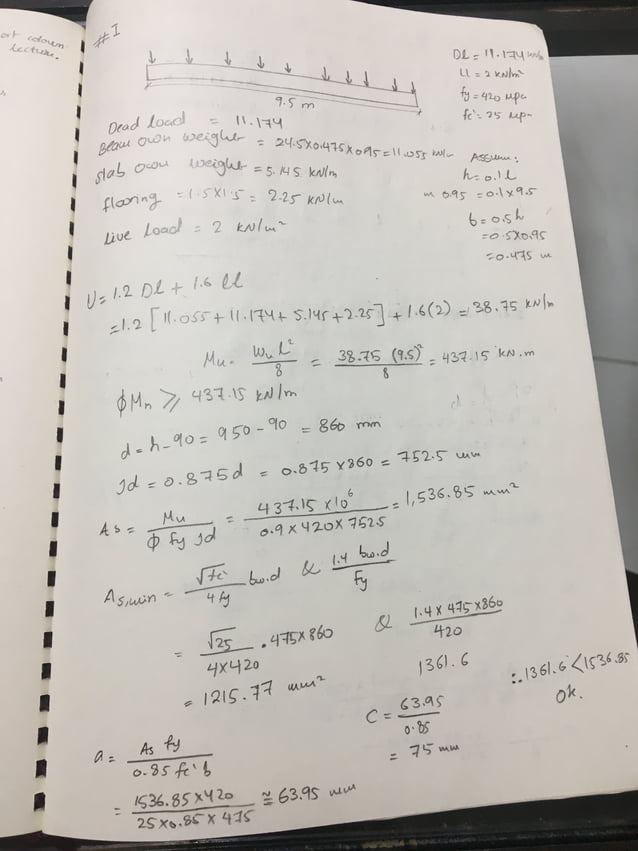 lecture.
#I
Dl = 11.174 kN/m
Ll = 2 kN/m²
fy = 420 Mpa
fc' = 25 Mpa
9.5 m
Dead load = 11.174
Beam own weight = 24.5x0.475x0.95 = 11.055 kN/m
Slab own weight = 5.145 kN/m
flooring = 1.5x1.5 = 2.25 kN/m
Live Load = 2 kN/m²
Assume:
h = 0.1 l
m 0.95 = 0.1 x 9.5
b = 0.5h
= 0.5x0.95
= 0.475 m
U = 1.2 Dl + 1.6 ll
= 1.2 [11.055 + 11.174 + 5.145 + 2.25] + 1.6(2) = 38.75 kN/m
Mu = Wu L²/8 = 38.75 (9.5)²/8 = 437.15 kN.m
ϕMn ≥ 437.15 kN/m
d = h - 90 = 950 - 90 = 860 mm
Jd = 0.875d = 0.875 x 860 = 752.5 mm
As = Mu/ϕ fy Jd = 437.15 x10⁶/0.9 x 420 x 752.5 = 1,536.85 mm²
As,min = √fc'/4fy bw.d & 1.4 bw.d/fy
= √25/4x420 . 475x860 & 1.4 x 475 x 860/420
= 1215.77 mm² 1361.6 ∴ 1361.6 < 1536.85
Ok.
a = As fy/0.85 fc' b
= 1536.85 x 420/25 x 0.85 x 475 ≅ 63.95 mm
C = 63.95/0.85
= 75 mm